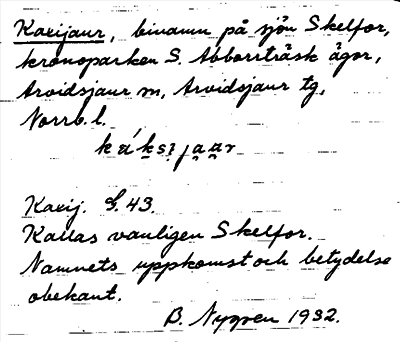 Kaxijaur, binamn på sjön Skelfor,
kronoparken S. Abborrträsk ägor,
Arvidsjaur m, Arvidsjaur tg,
Norrb. l.
Kaxij. G. 43.
Kallas vanligen Skelfor.
Namnets uppkomst och betydelse
obekant.
B. Nygren 1932.